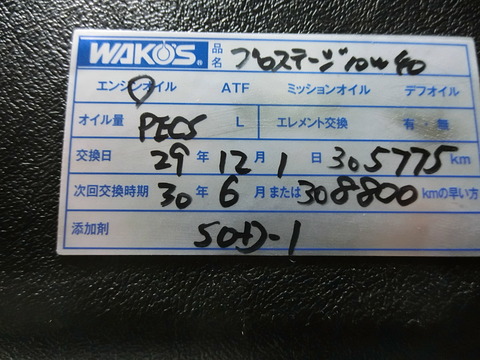 WAKO'S® 品名 プロステージ10w40
エンジンオイル ATF ミッションオイル デフオイル
オイル量 PECS L エレメント交換 有 無
交換日 29年 12月 1日 305775km
次回交換時期 30年 6月または308800kmの早い方
添加剤 SOD-1